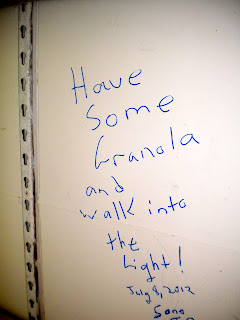 Have
Some
Granola
and
walk into
the
Light!
July 8, 2012